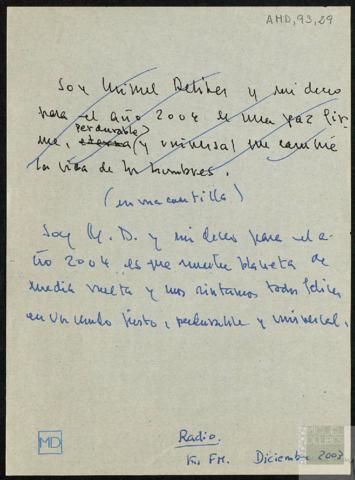 AMD, 93, 29
Soy Miguel Delibes y mi deseo
para el año 2004 es una paz fir-
me, eterna perdurable (y universal que cambie
la vida de los hombres.
(en una cuartilla)
Soy M. D. y mi deseo para el a-
ño 2004 es que nuestro planeta dé
media vuelta y nos sintamos todos felices
en un mundo justo, perdurable y universal.
Radio.
FM.
Diciembre 2003
MD
DELIBES